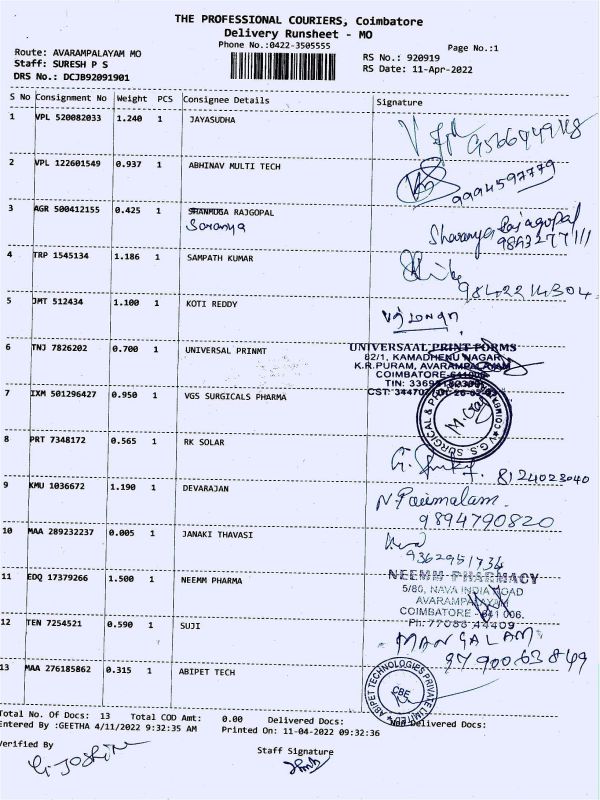 THE PROFESSIONAL COURIERS, Coimbatore
Delivery Runsheet - MO
Phone No.:0422-3505555
Page No.:1
Route: AVARAMPALAYAM MO
Staff: SURESH P S
DRS No.: DCJB92091901
RS No.: 920919
RS Date: 11-Apr-2022
S No Consignment No Weight PCS Consignee Details Signature
1 VPL 520082033 1.240 1 JAYASUDHA
2 VPL 122601549 0.937 1 ABHINAV MULTI TECH 9994597779
3 AGR 500412155 0.425 1 SHANMUGA RAJGOPAL
Saranya Sharanya Rajagopal
4 TRP 1545134 1.186 1 SAMPATH KUMAR
9842214304
5 JMT 512434 1.100 1 KOTI REDDY
6 TNJ 7826202 0.700 1 UNIVERSAL PRINMT
UNIVERSAAL PRINT FORMS
82/1, KAMADHENU NAGAR
K.R.PURAM, AVARAMPALAYAM
COIMBATORE-641006
7 IXM 501296427 0.950 1 VGS SURGICALS PHARMA
8 PRT 7348172 0.565 1 RK SOLAR
8124023040
9 KMU 1036672 1.190 1 DEVARAJAN
N. Parimalam.
9894790820
10 MAA 289232237 0.005 1 JANAKI THAVASI
9362951734
11 EDQ 17379266 1.500 1 NEEMM PHARMA
NEEMM PHARMACY
5/86, NAVA INDIA ROAD
AVARAMPALAYAM
COIMBATORE - 641 006.
Ph: 77088 44409
12 TEN 7254521 0.590 1 SUJI
MANGALAM
9790063849
13 MAA 276185862 0.315 1 ABIPET TECH
ABIPET TECHNOLOGIES PRIVATE LIMITED
CBE
Total No. Of Docs: 13 Total COD Amt: 0.00 Delivered Docs: Non Delivered Docs:
Entered By :GEETHA 4/11/2022 9:32:35 AM Printed On: 11-04-2022 09:32:36
Verified By Staff Signature